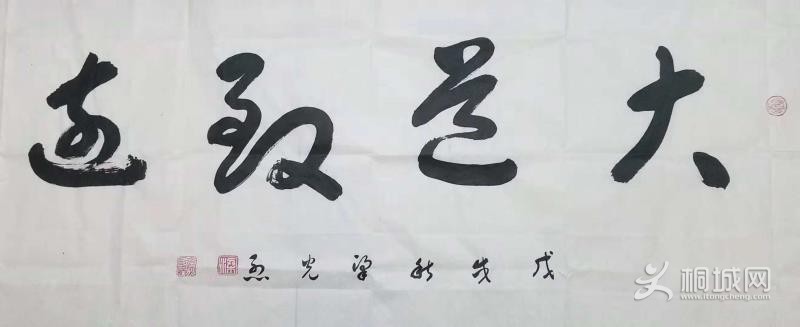 大道致遠
戊戌秋梁光烈
桐城网
www.itongcheng.com